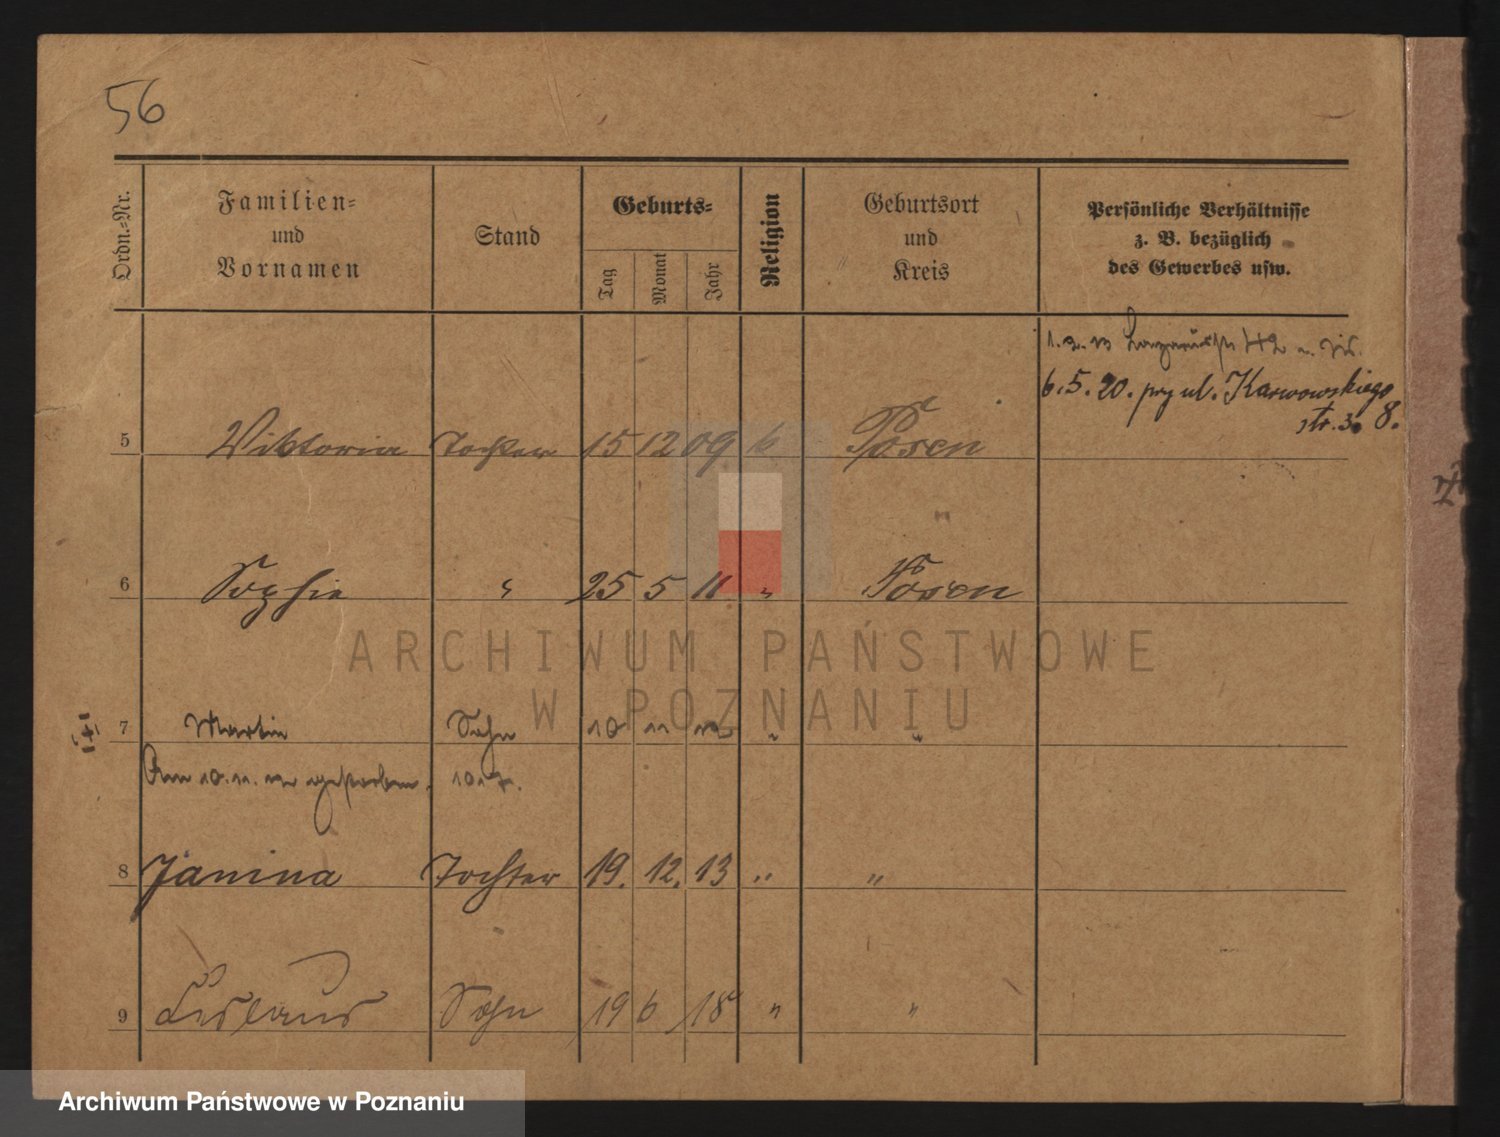 56
Ordn.-Nr.
Familien-
und
Vornamen
Stand
Geburts-
Tag
Monat
Jahr
Religion
Geburtsort
und
Kreis
Persönliche Verhältnisse
z. B. bezüglich
des Gewerbes usw.
42
6.5.20. przy ul. Karwowskiego
str. 8.
5 Viktoria Tochter 15 12 09 k Posen
6 Sophie " 25 5 11 " Posen
7 Martin Sohn 10 11 12 " "
Am 10.11.12 gestorben.
8 Janina Tochter 19. 12. 13 " "
9 Sohn 19 6 18 " "
ARCHIWUM PAŃSTWOWE
W POZNANIU
Archiwum Państwowe w Poznaniu